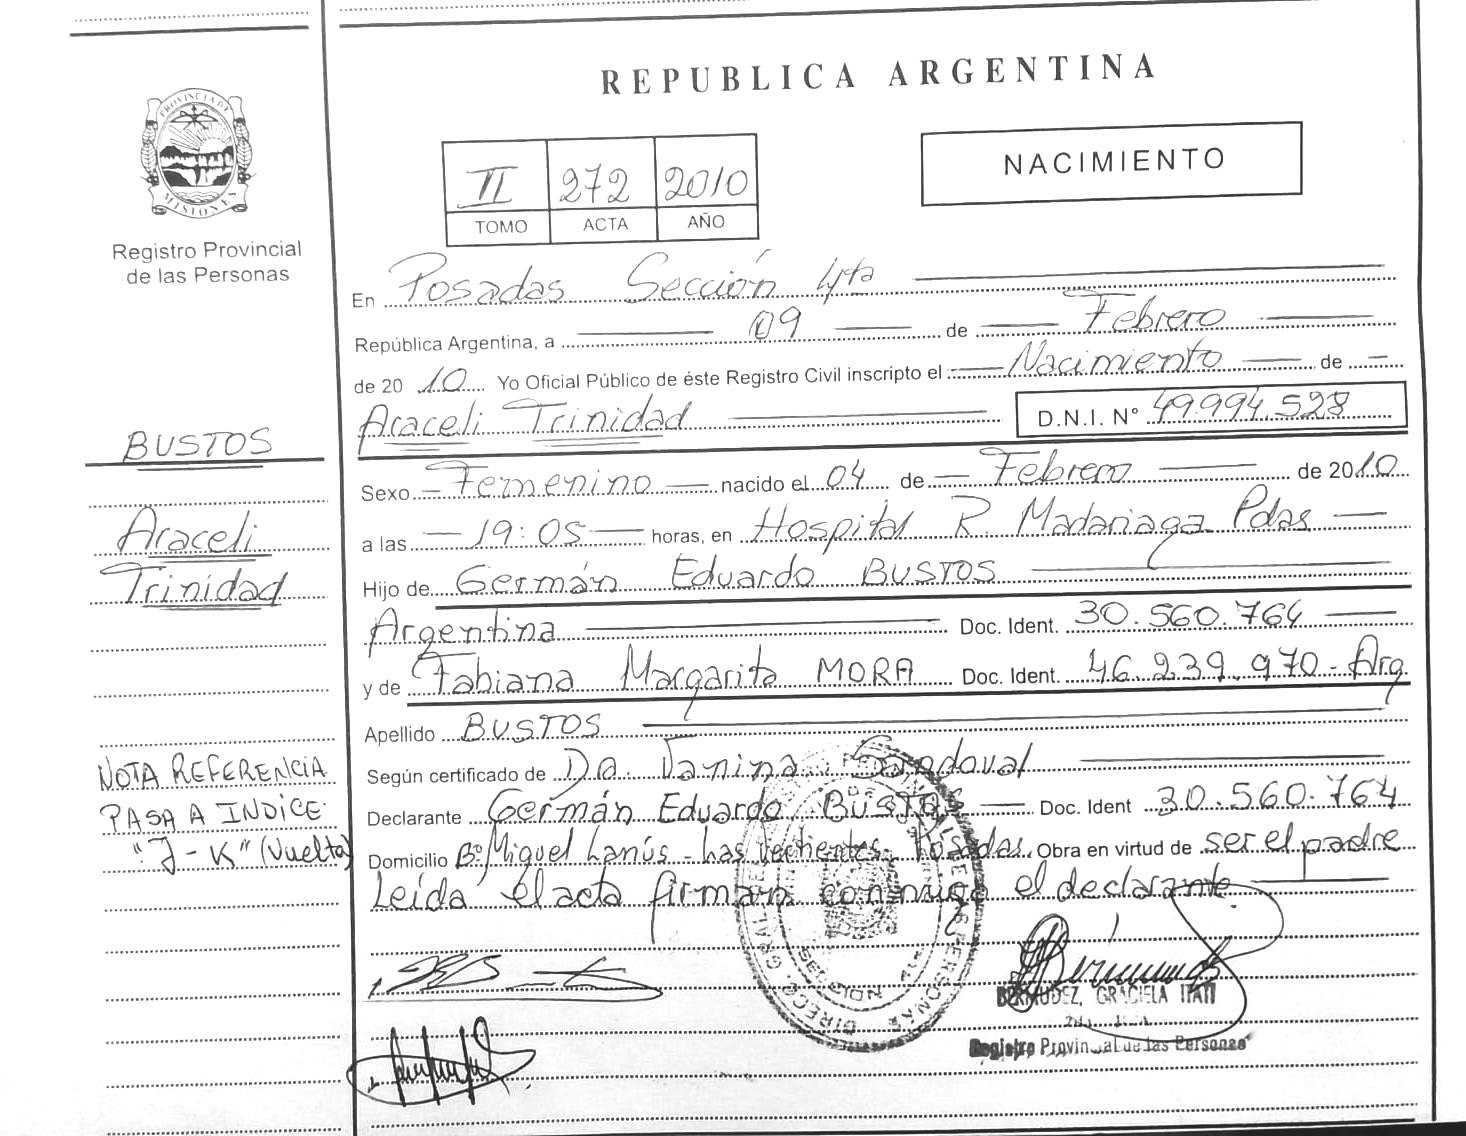 REPUBLICA ARGENTINA
PROVINCIA DE MISIONES
Registro Provincial
de las Personas
II 272 2010
TOMO ACTA AÑO
NACIMIENTO
En Posadas Sección 4ta
República Argentina, a 09 de Febrero
de 2010 Yo Oficial Público de éste Registro Civil inscripto el Nacimiento de
Araceli Trinidad D.N.I. N° 49.994.528
BUSTOS
Araceli
Trinidad
Sexo Femenino nacido el 04 de Febrero de 2010
a las 19:05 horas, en Hospital R. Madariaga Pdas
Hijo de Germán Eduardo BUSTOS
Argentina Doc. Ident. 30.560.764
y de Fabiana Margarita MORA Doc. Ident. 46.239.970 - Arg.
Apellido BUSTOS
Según certificado de Da. Vanina Sandoval
Declarante Germán Eduardo BUSTOS Doc. Ident 30.560.764
Domicilio Bº Miguel Lanús - Las Vertientes - Posadas. Obra en virtud de ser el padre
Leída el acta firman conmigo el declarante
NOTA REFERENCIA
PASA A INDICE
"J - K" (Vuelta)
BERMUDEZ, GRACIELA ITATI
Registro Provincial de las Personas